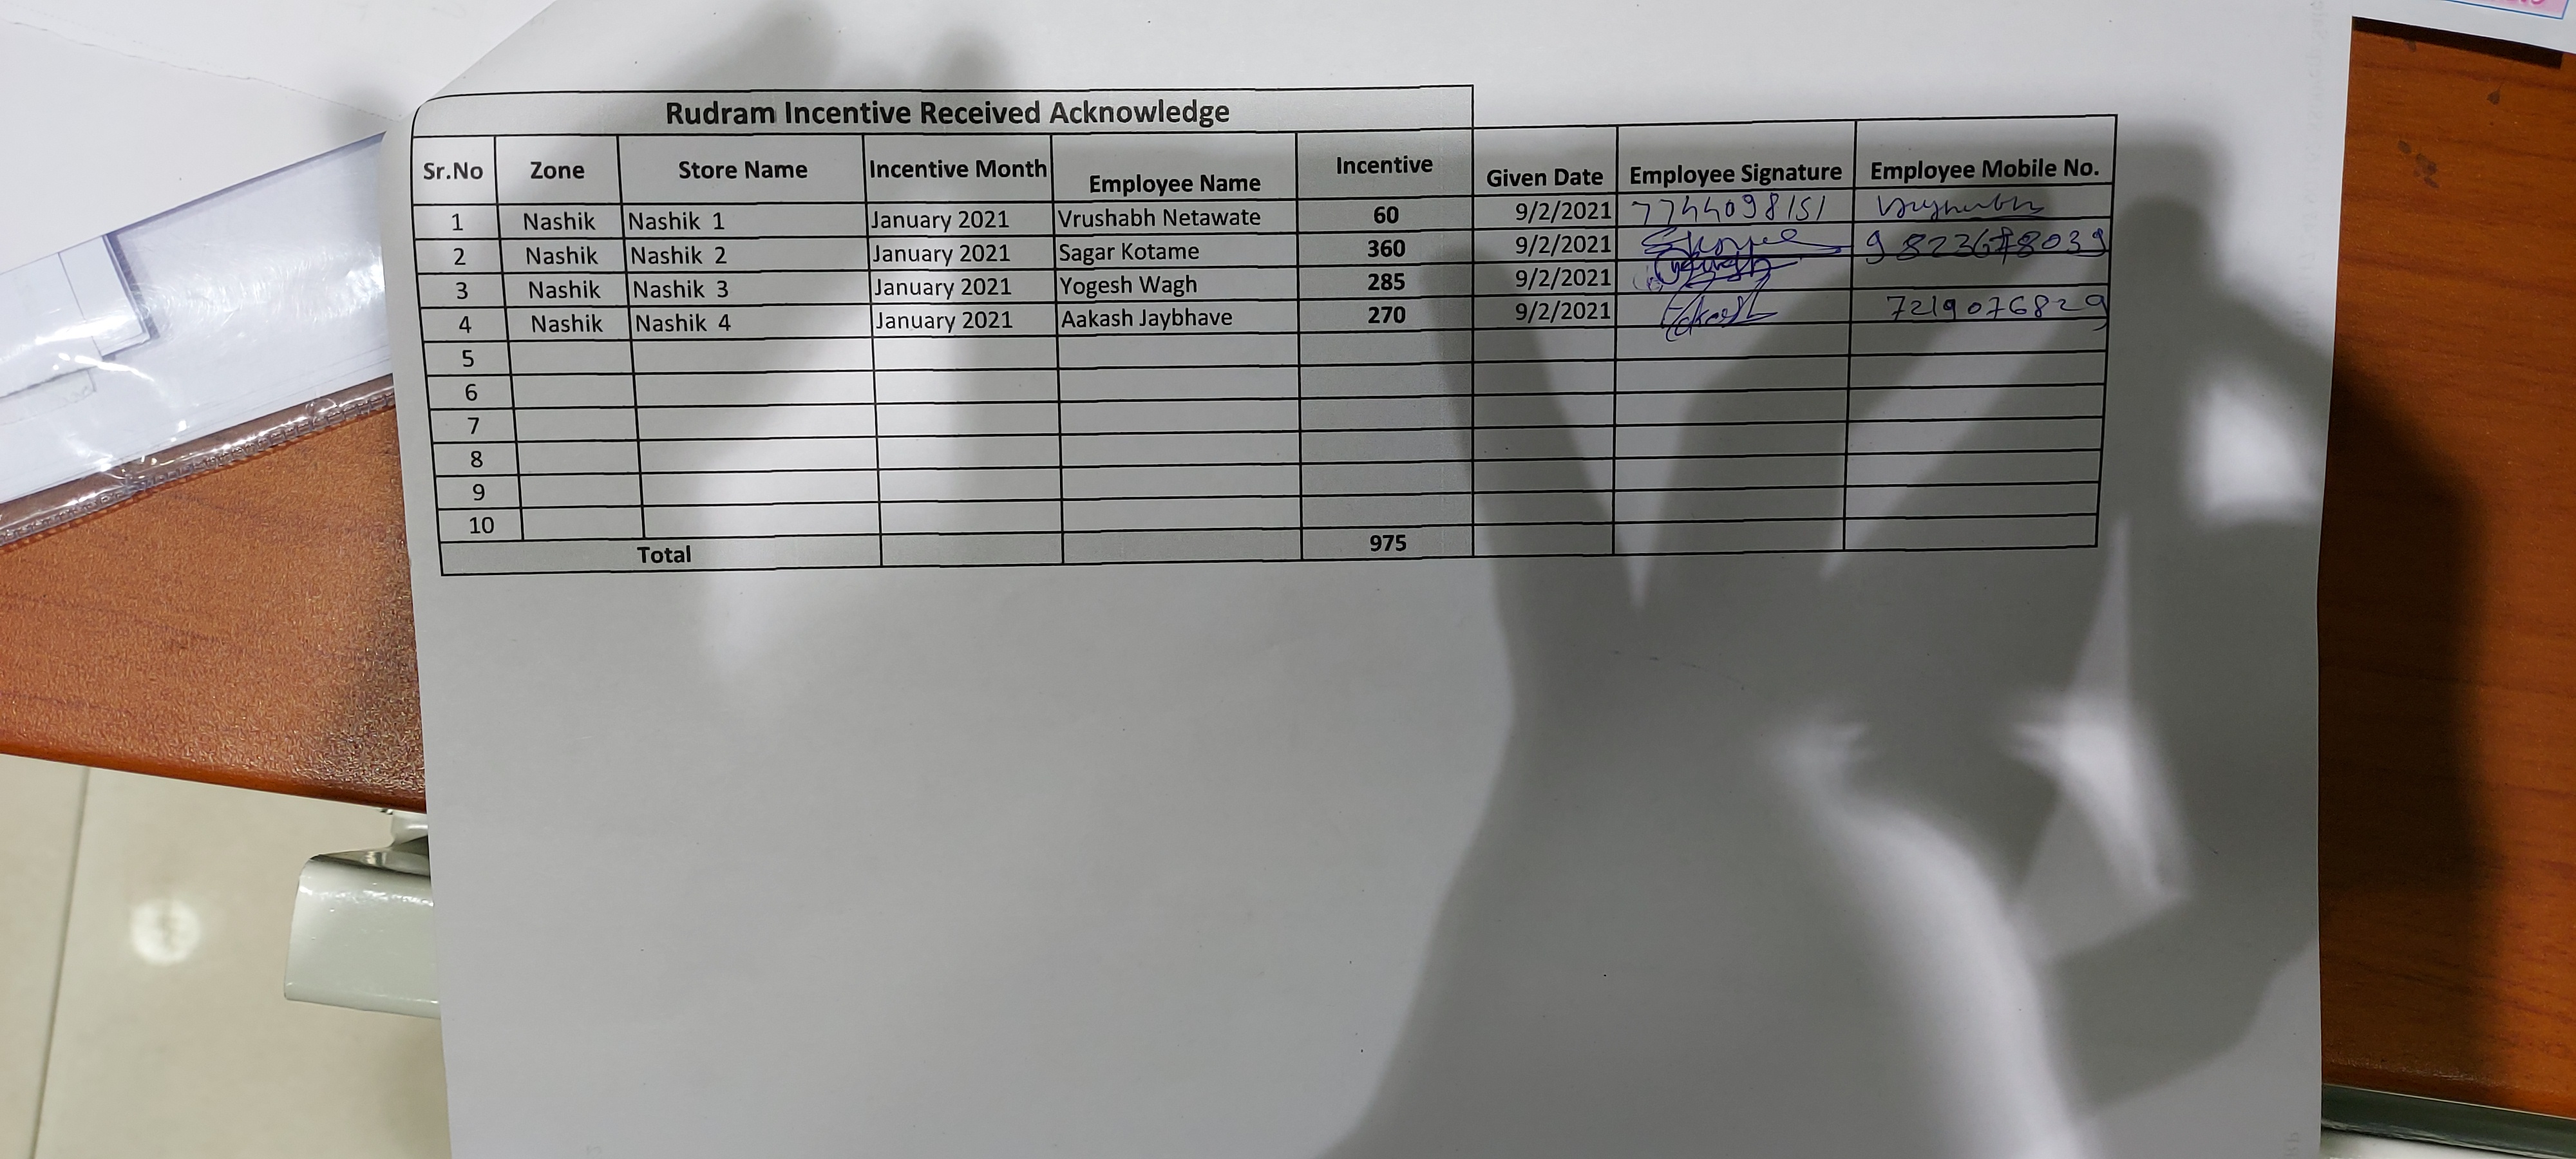 Rudram Incentive Received Acknowledge
Sr.No Zone Store Name Incentive Month Employee Name Incentive Given Date Employee Signature Employee Mobile No.
1 Nashik Nashik 1 January 2021 Vrushabh Netawate 60 9/2/2021 7744098151
2 Nashik Nashik 2 January 2021 Sagar Kotame 360 9/2/2021
3 Nashik Nashik 3 January 2021 Yogesh Wagh 285 9/2/2021
4 Nashik Nashik 4 January 2021 Aakash Jaybhave 270 9/2/2021 7219076829
5
6
7
8
9
10
Total 975